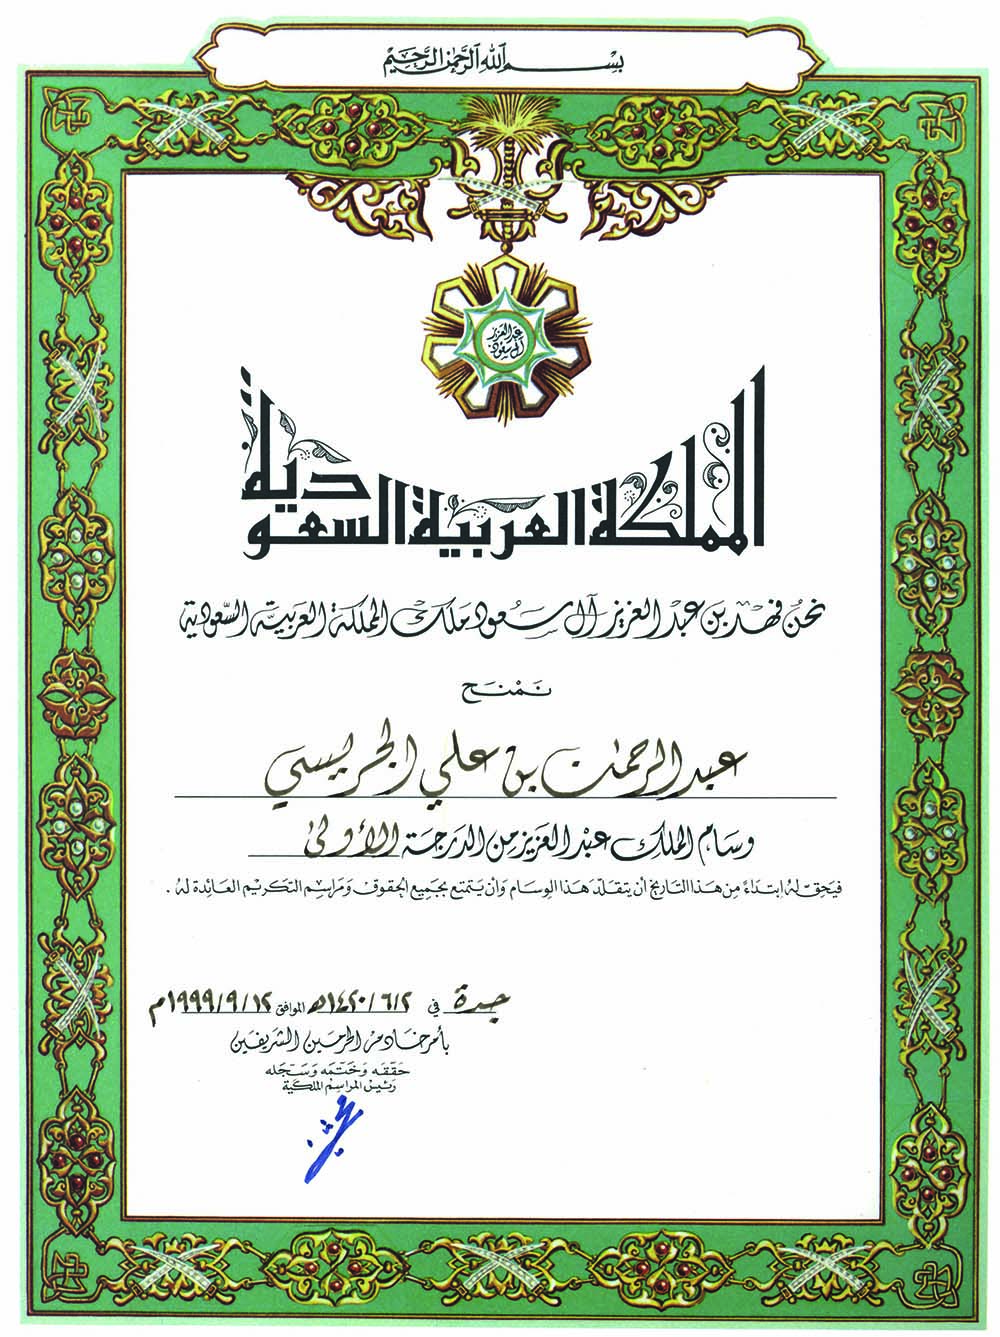 بسم الله الرحمن الرحيم
عبد العزيز
آل سعود
المملكة العربية السعودية
نحن فهد بن عبد العزيز آل سعود ملك المملكة العربية السعودية
نمنح
عبد الرحمن بن علي الجريسي
وسام الملك عبد العزيز من الدرجة الأولى
فيحق له ابتداءً من هذا التاريخ أن يتقلد هذا الوسام وأن يتمتع بجميع الحقوق ومراسم التكريم العائدة له .
جدة في ١٤٢٠/٦/٢هـ الموافق ١٩٩٩/٩/١٢م
بأمر خادم الحرمين الشريفين
حققه وختمه وسجله
رئيس المراسم الملكية